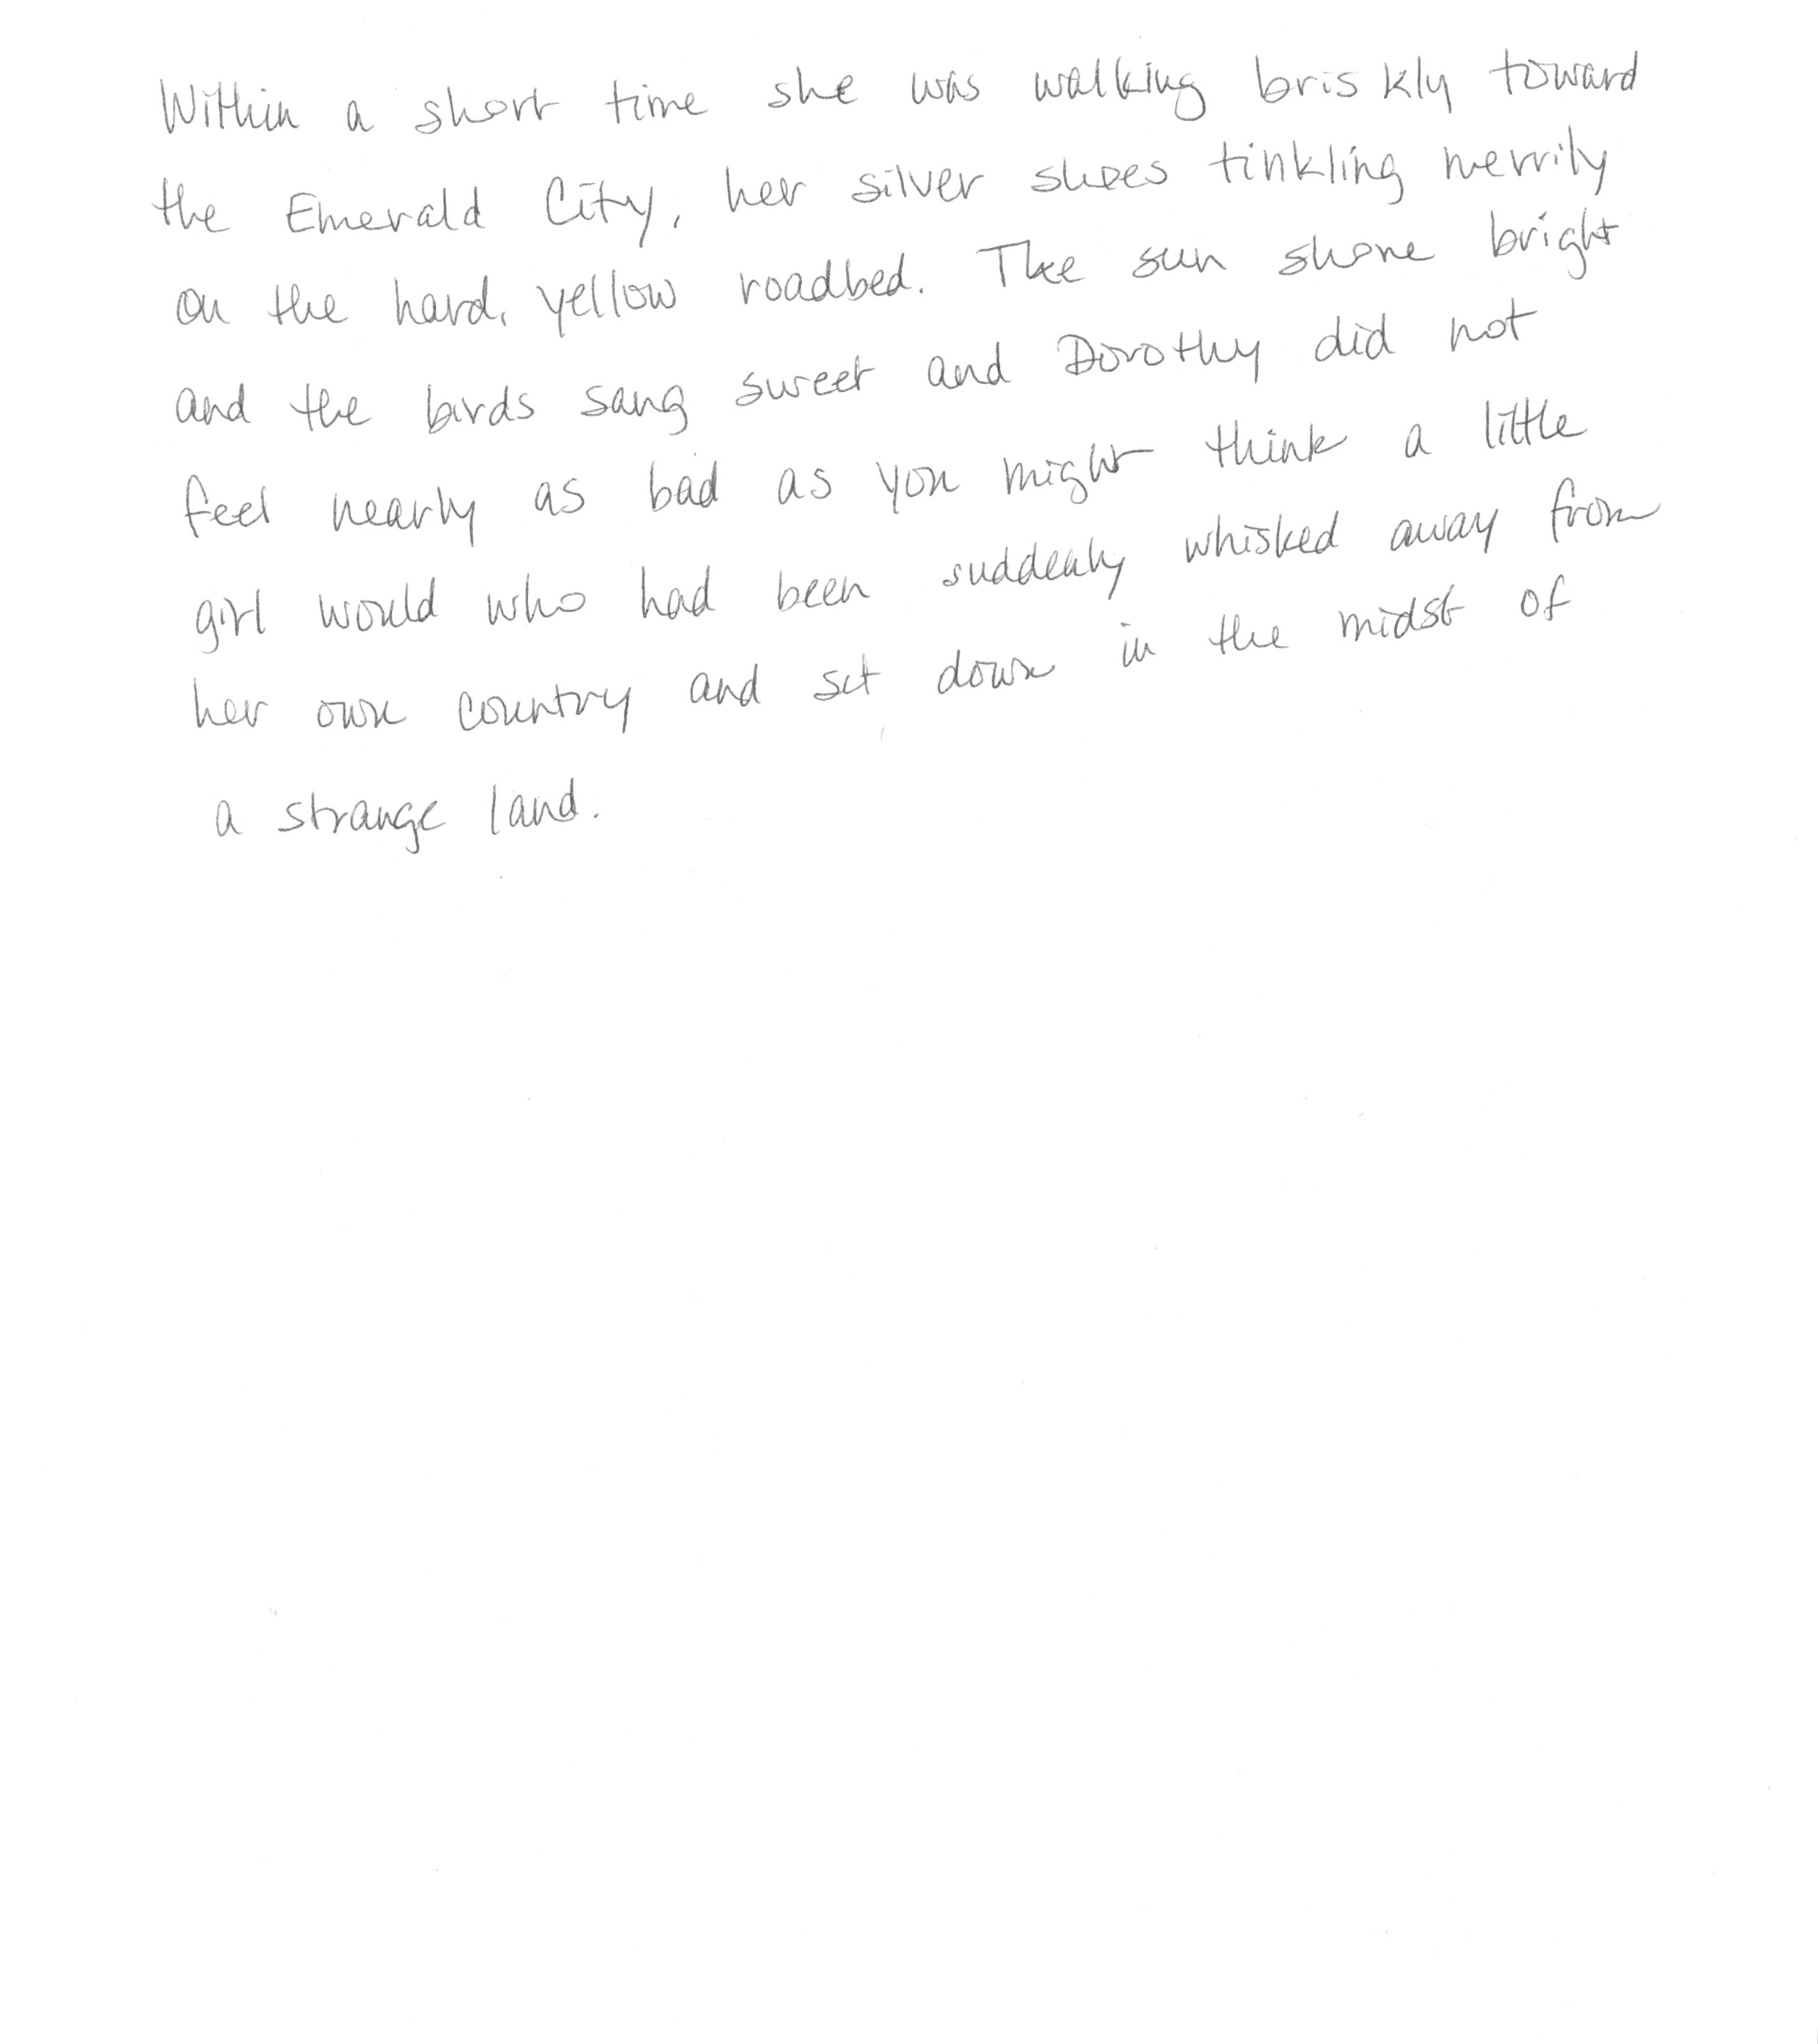 Within a short time she was walking briskly toward
the Emerald City, her silver shoes tinkling merrily
on the hard, yellow roadbed. The sun shone bright
and the birds sang sweet and Dorothy did not
feel nearly as bad as you might think a little
girl would who had been suddenly whisked away from
her own country and set down in the midst of
a strange land.